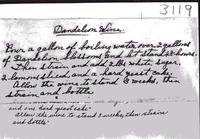 3119
Dandelion Wine.
Pour a gallon of boiling water over 3 gallons
of Dandelion blossoms and let stand 24 hours.
Then strain and add 2 lbs white sugar,
2 lemons sliced and a hard yeast cake.
Allow the wine to stand 3 weeks, then
strain and bottle.
and one hard yeast cake.
Allow the wine to stand 3 weeks, then strain
and bottle.